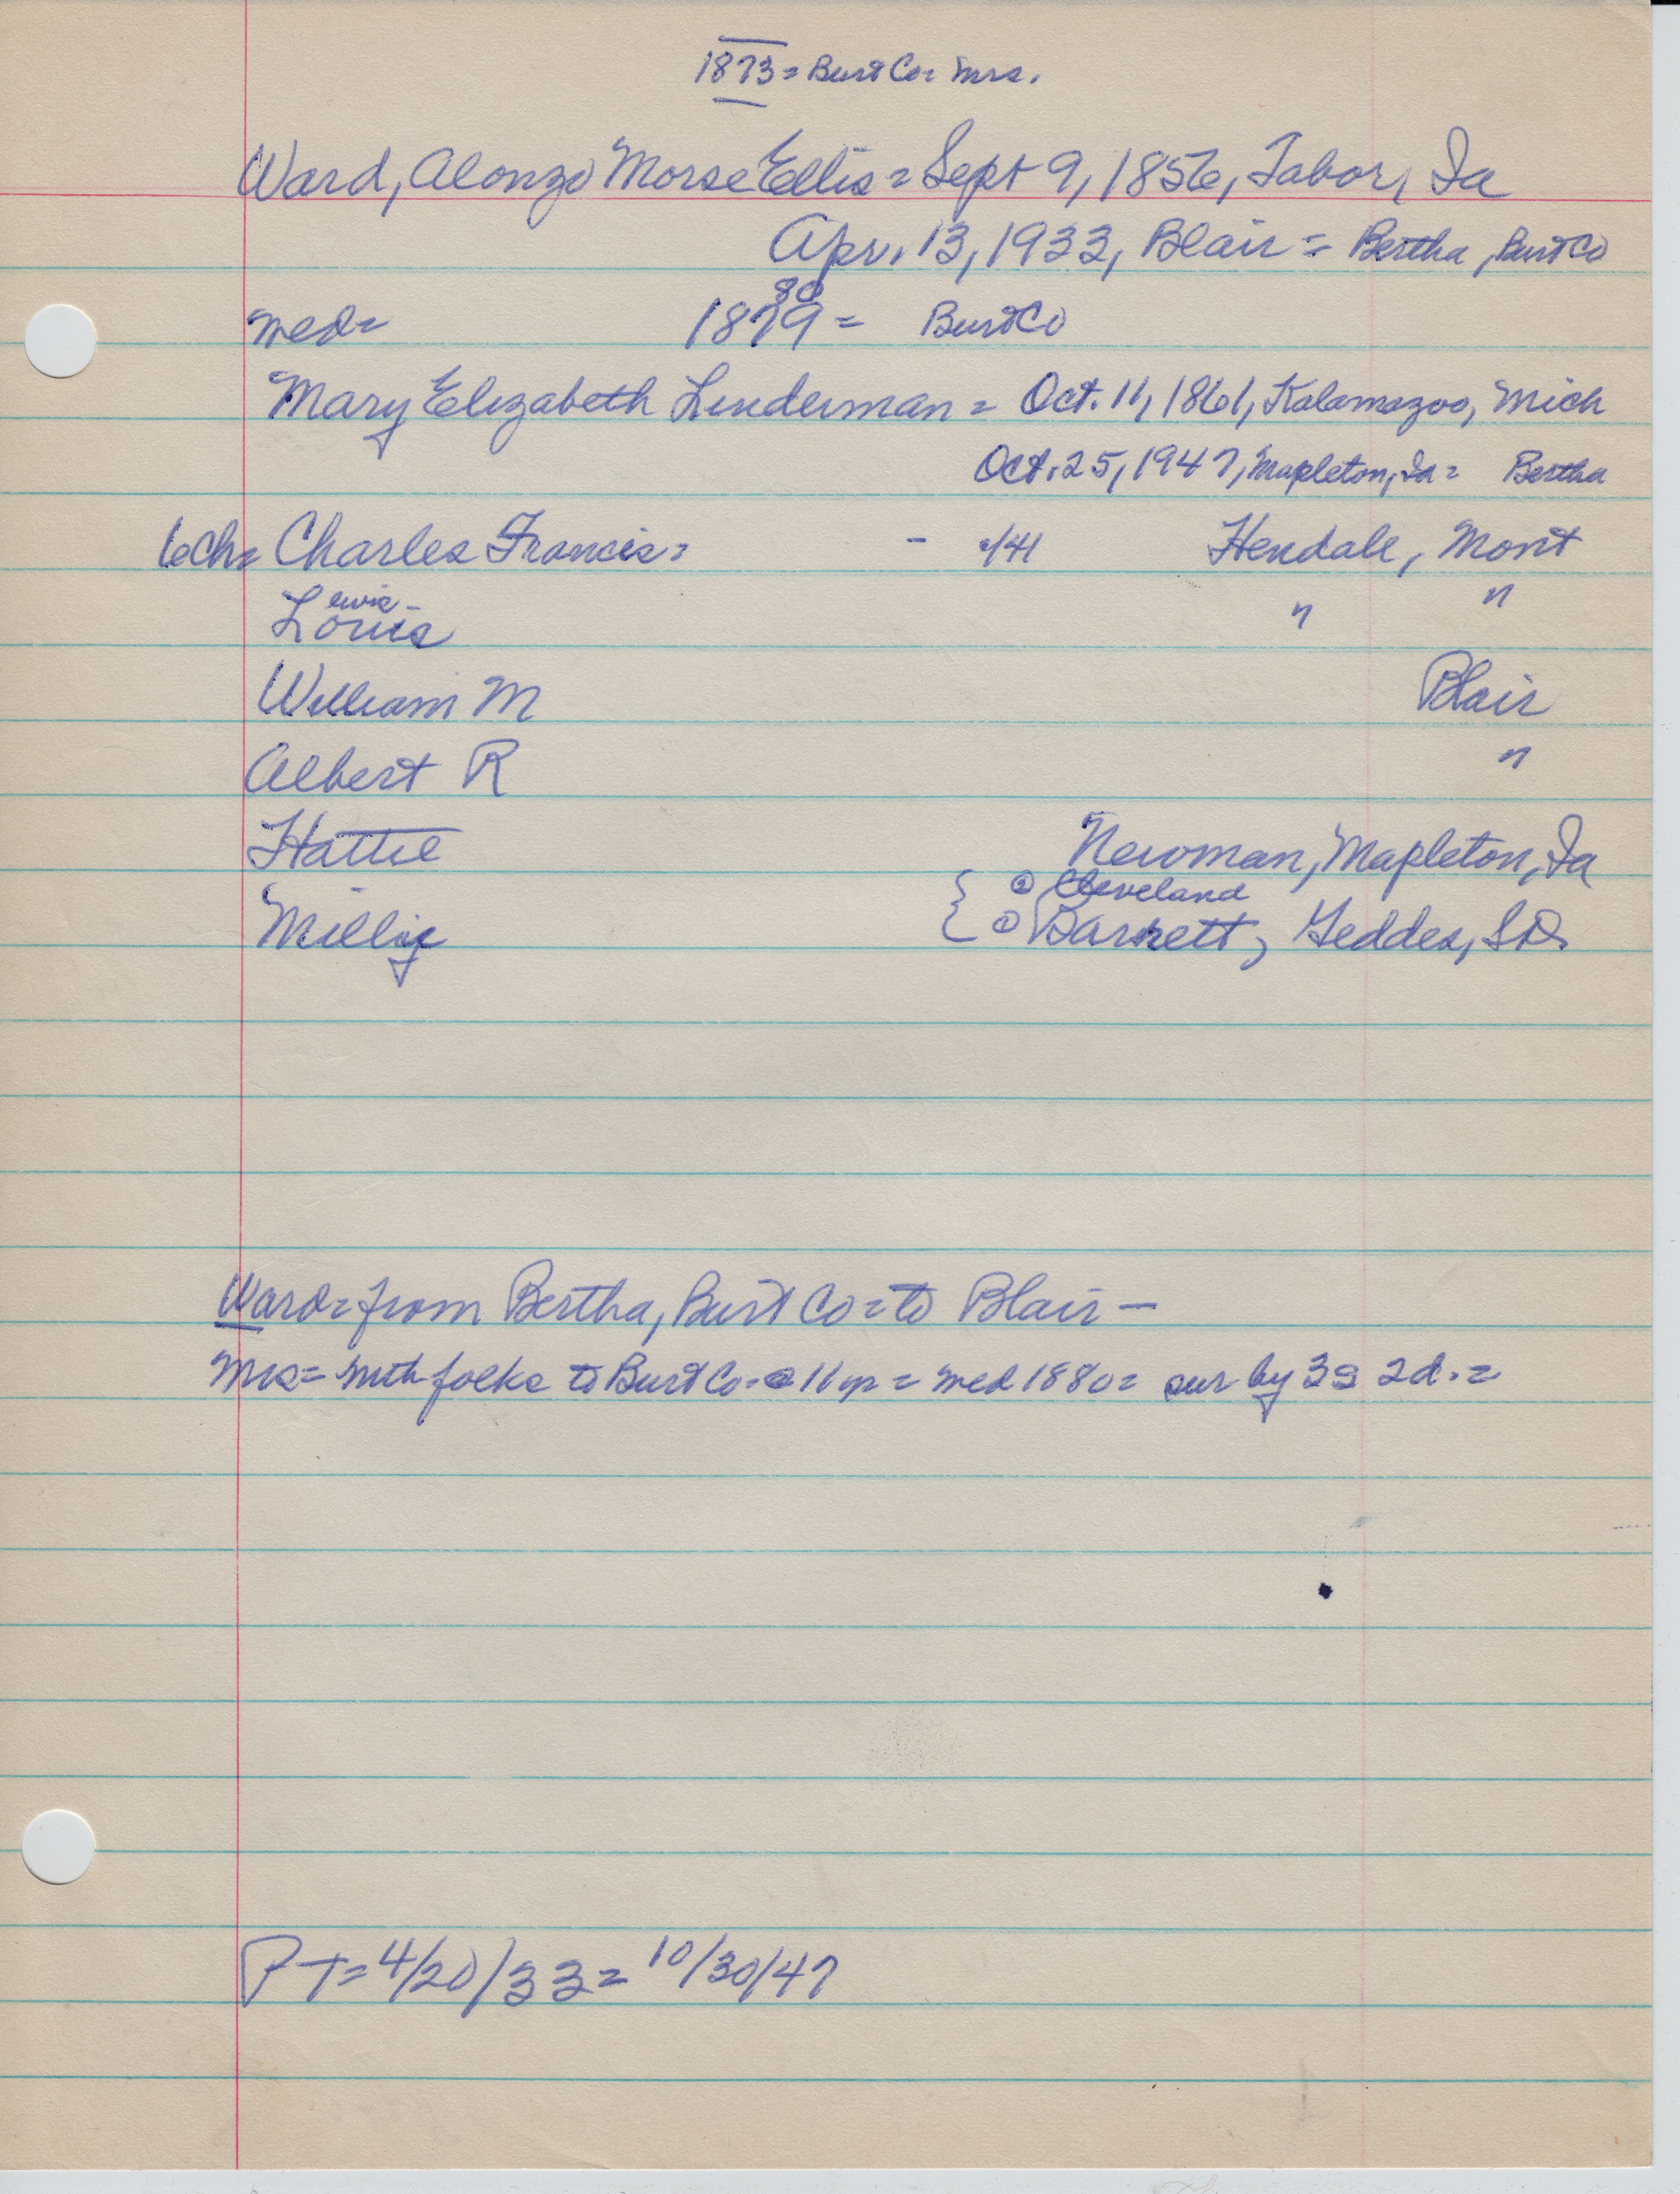 1873 = Burt Co = Mrs.
Ward, Alonzo Morse Ellis = Sept 9, 1856, Tabor, Ia
Apr. 13, 1933, Blair = Bertha, Burt Co
80
med = 1879 = Burt Co
Mary Elizabeth Linderman = Oct. 11, 1861, Kalamazoo, Mich
Oct. 25, 1947, Mapleton, Ia = Bertha
6ch = Charles Francis = - /41 Hendale, Mont
ewis -
Louis " "
William M Blair
Albert R "
Hattie Newman, Mapleton, Ia
② Cleveland
Millie ① Barnett, Geddes, SD
Ward = from Bertha, Burt Co = to Blair -
Mrs = with folks to Burt Co - @ 11 yr = med 1880 = sur by 3s 2d. =
PT = 4/20/33 = 10/30/47